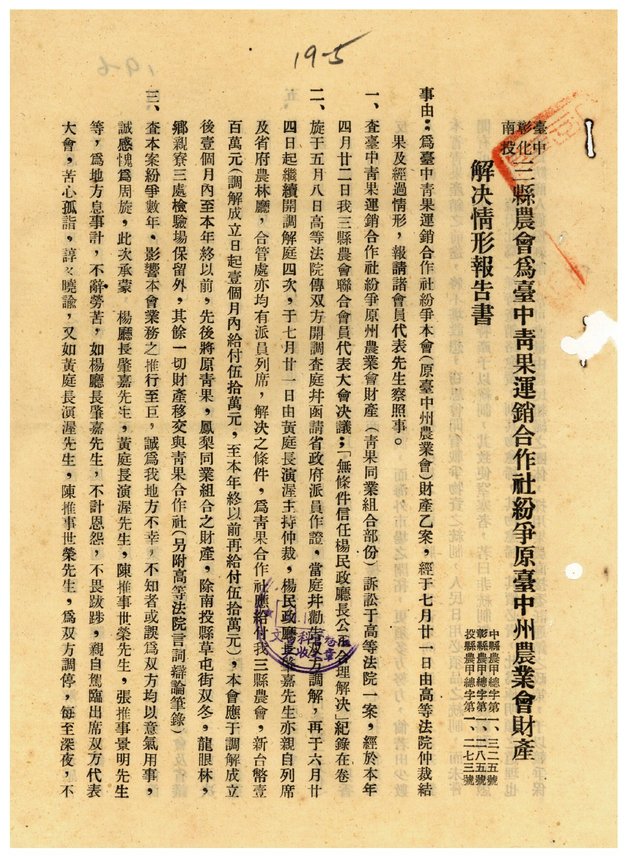 19-5
臺中
彰化
南投
三縣農會爲臺中靑果運銷合作社紛爭原臺中州農業會財產
解決情形報告書
中縣農甲總字第一、三二五號
彰縣農甲總字第一、二八五號
投縣農甲總字第一、二七三號
事由：爲臺中靑果運銷合作社紛爭本會（原臺中州農業會）財產乙案，經于七月廿一日由高等法院仲裁結
果及經過情形，報請諸會員代表先生察照事。
一、查臺中靑果運銷合作社紛爭原州農業會財產（靑果同業組合部份）訴訟于高等法院一案，經於本年
四月廿二日我三縣農會聯合會員代表大會决議；「無條件信任楊民政廳長公正合理解决」紀錄在卷
二、旋于五月八日高等法院傳双方開調查庭幷函請省政府派員作證，當庭幷勸告双方調解，再于六月廿
四日起繼續開調解庭四次，于七月廿一日由黃庭長演渥主持仲裁，楊民政廳長肇嘉先生亦親自列席
及省府農林廳，合管處亦均有派員列席，解决之條件，爲靑果合作社應給付我三縣農會，新台幣壹
百萬元（調解成立日起壹個月內給付伍拾萬元，至本年終以前再給付伍拾萬元），本會應于調解成立
後壹個月內至本年終以前，先後將原靑果，鳳梨同業組合之財產，除南投縣草屯街双冬，龍眼林，
鄉親寮三處檢驗塲保留外，其餘一切財產移交與靑果合作社（另附高等法院言詞辯論筆錄）
三、查本案紛爭數年。影響本會業務之推行至巨，誠爲我地方不幸，不知者或誤爲双方均以意氣用事，
誠感愧爲周旋，此次承蒙　楊廳長肇嘉先生，黃庭長演渥先生，陳推事世榮先生，張推事景明先生
等，爲地方息事計，不辭勞苦，如楊廳長肇嘉先生，不計恩怨，不畏跋跡，親自駕臨出席双方代表
大會，苦心孤詣，諄々曉諭，又如黃庭長演渥先生，陳推事世榮先生，爲双方調停，每至深夜，不